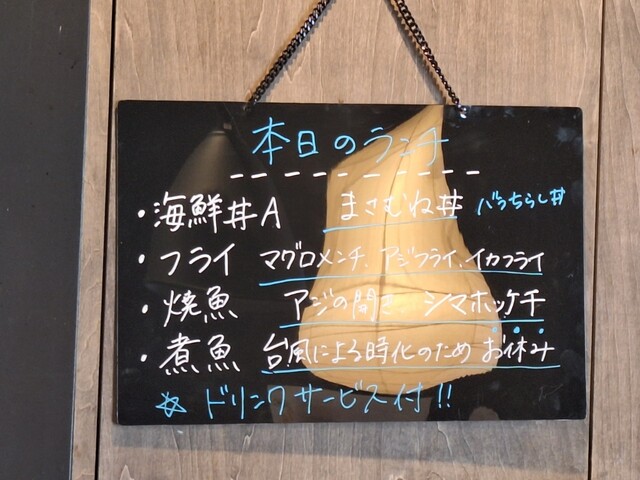 本日のランチ
・海鮮丼A まさむね丼 バラちらし丼
・フライ マグロメンチ、アジフライ、イカフライ
・焼魚 アジの開き、シマホッケチ
・煮魚 台風による時化のため お休み
☆ ドリンクサービス付!!